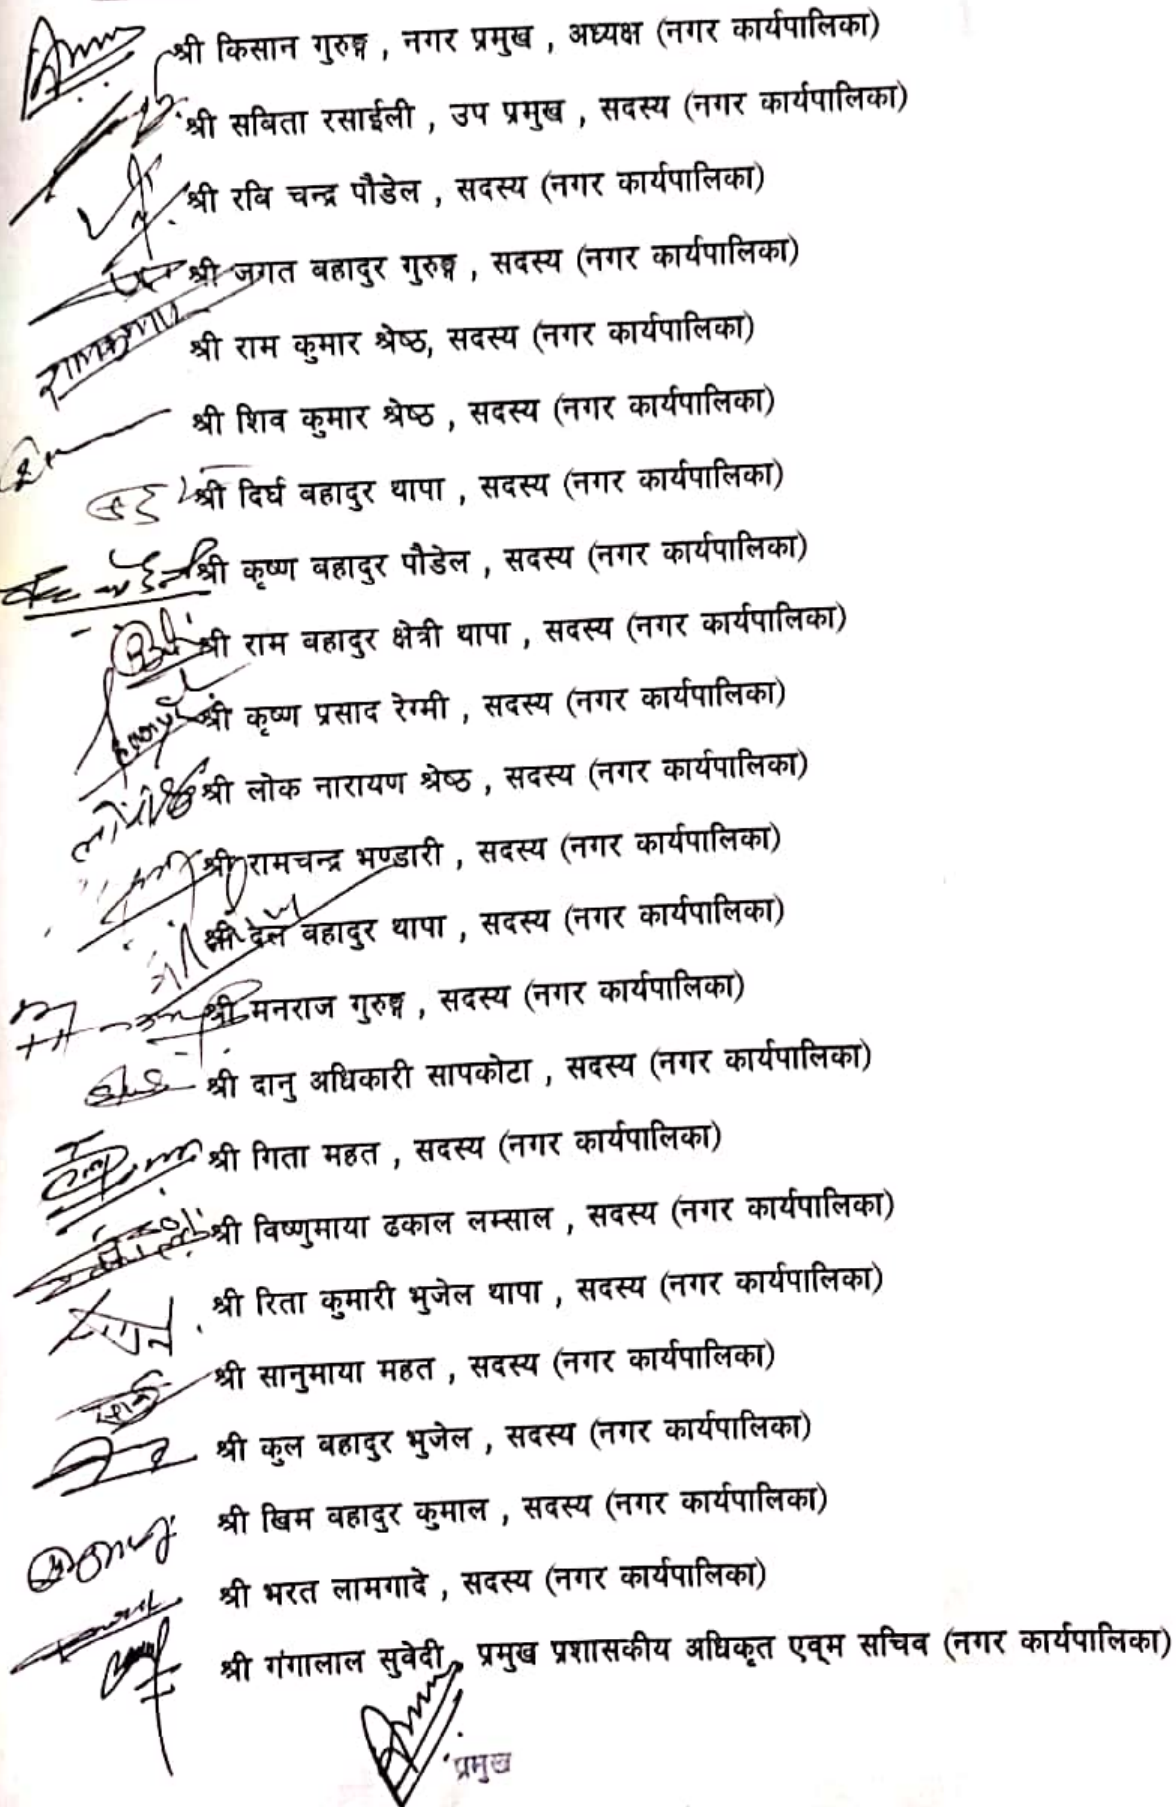 श्री किसान गुरुङ्ग , नगर प्रमुख , अध्यक्ष (नगर कार्यपालिका)
श्री सबिता रसाईली , उप प्रमुख , सदस्य (नगर कार्यपालिका)
श्री रबि चन्द्र पौडेल , सदस्य (नगर कार्यपालिका)
श्री जगत बहादुर गुरुङ्ग , सदस्य (नगर कार्यपालिका)
श्री राम कुमार श्रेष्ठ, सदस्य (नगर कार्यपालिका)
श्री शिव कुमार श्रेष्ठ , सदस्य (नगर कार्यपालिका)
श्री दिर्घ बहादुर थापा , सदस्य (नगर कार्यपालिका)
श्री कृष्ण बहादुर पौडेल , सदस्य (नगर कार्यपालिका)
श्री राम बहादुर क्षेत्री थापा , सदस्य (नगर कार्यपालिका)
श्री कृष्ण प्रसाद रेग्मी , सदस्य (नगर कार्यपालिका)
श्री लोक नारायण श्रेष्ठ , सदस्य (नगर कार्यपालिका)
श्री रामचन्द्र भण्डारी , सदस्य (नगर कार्यपालिका)
श्री देल बहादुर थापा , सदस्य (नगर कार्यपालिका)
श्री मनराज गुरुङ्ग , सदस्य (नगर कार्यपालिका)
श्री दानु अधिकारी सापकोटा , सदस्य (नगर कार्यपालिका)
श्री गिता महत , सदस्य (नगर कार्यपालिका)
श्री विष्णुमाया ढकाल लम्साल , सदस्य (नगर कार्यपालिका)
श्री रिता कुमारी भुजेल थापा , सदस्य (नगर कार्यपालिका)
श्री सानुमाया महत , सदस्य (नगर कार्यपालिका)
श्री कुल बहादुर भुजेल , सदस्य (नगर कार्यपालिका)
श्री खिम बहादुर कुमाल , सदस्य (नगर कार्यपालिका)
श्री भरत लामगादे , सदस्य (नगर कार्यपालिका)
श्री गंगालाल सुवेदी , प्रमुख प्रशासकीय अधिकृत एव्म सचिव (नगर कार्यपालिका)
प्रमुख